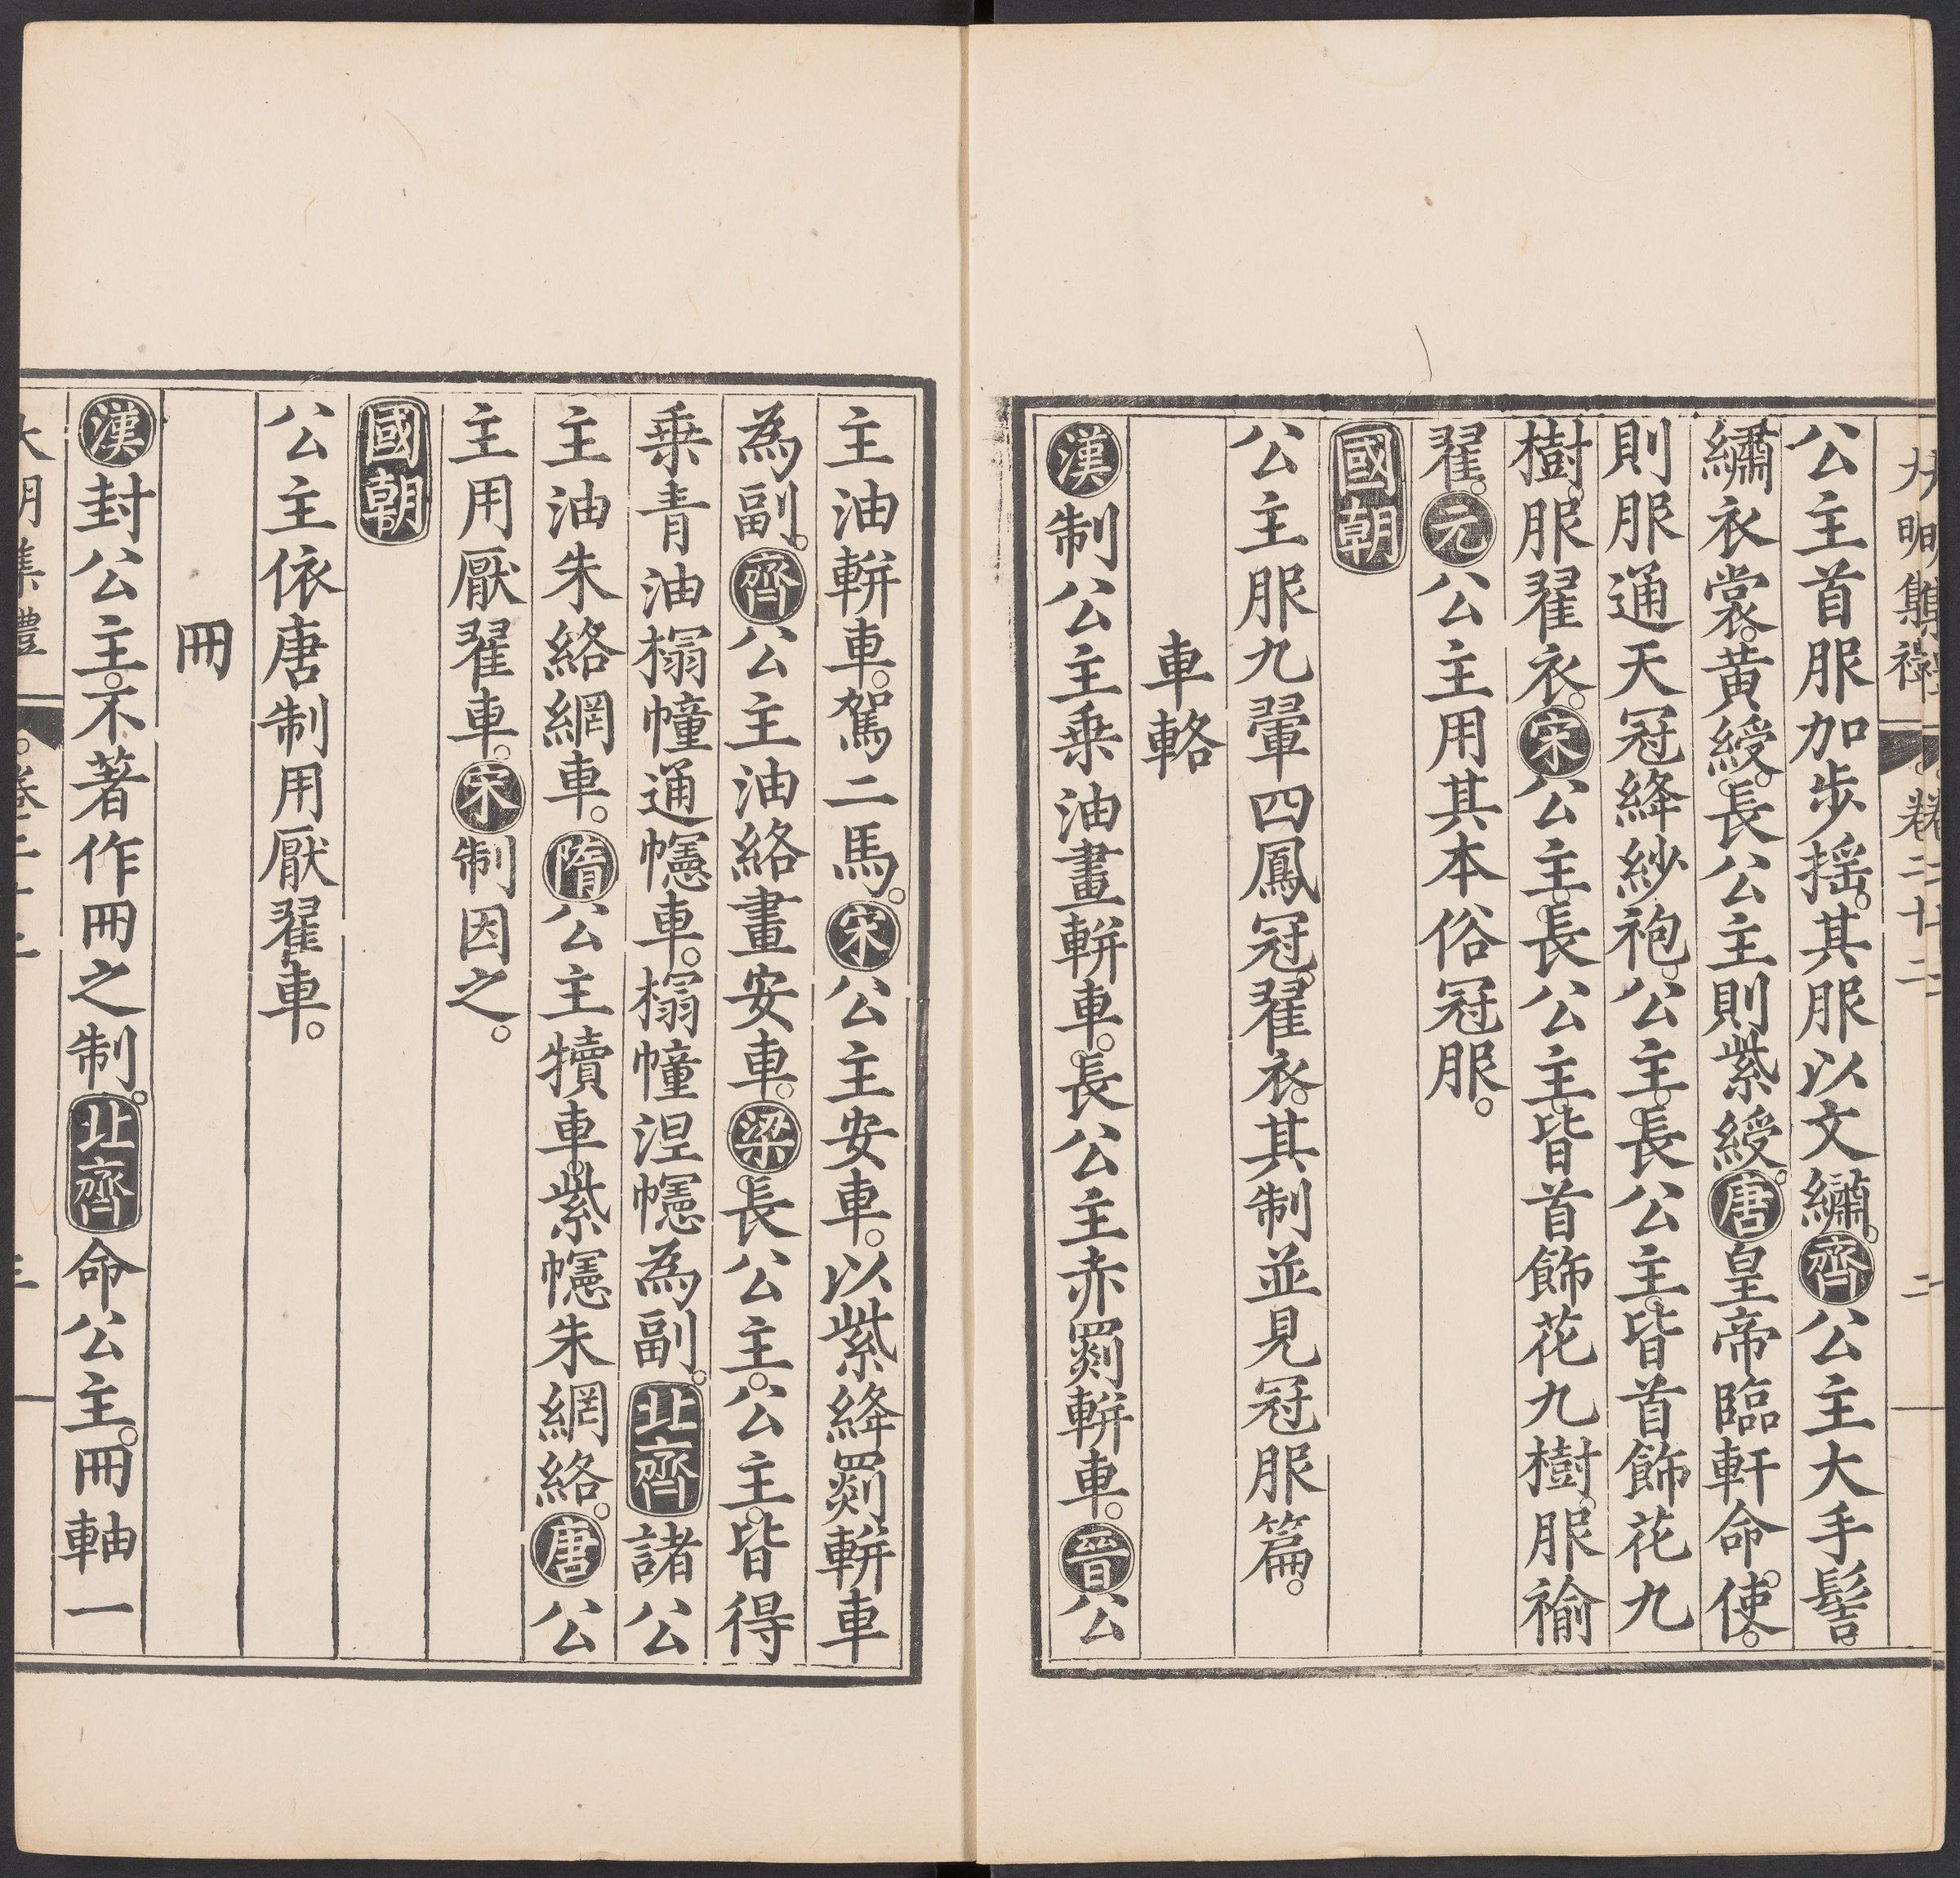 大明集禮 卷二十二 二
公主首服加步摇。其服以文繡。齊公主大手髻。
繡衣裳。黄綬。長公主則紫綬。唐皇帝臨軒命使。
則服通天冠絳紗袍。公主。長公主。皆首飾花九
樹。服翟衣。宋公主。長公主。皆首飾花九樹。服褕
翟。元公主用其本俗冠服。
國朝
公主服九翬四鳳冠。翟衣。其制並見冠服篇。
車輅
漢制公主乗油畫輧車。長公主赤罽輧車。晉公
主油輧車。駕二馬。宋公主安車。以紫絳罽輧車
為副。齊公主油絡畫安車。梁長公主。公主。皆得
乗青油搨幢通幰車。搨幢涅幰為副。北齊諸公
主油朱絡網車。隋公主犢車。紫幰朱網絡。唐公
主用厭翟車。宋制因之。
國朝
公主依唐制用厭翟車。
冊
漢封公主。不著作冊之制。北齊命公主。冊軸一
大明集禮 卷二十二 三